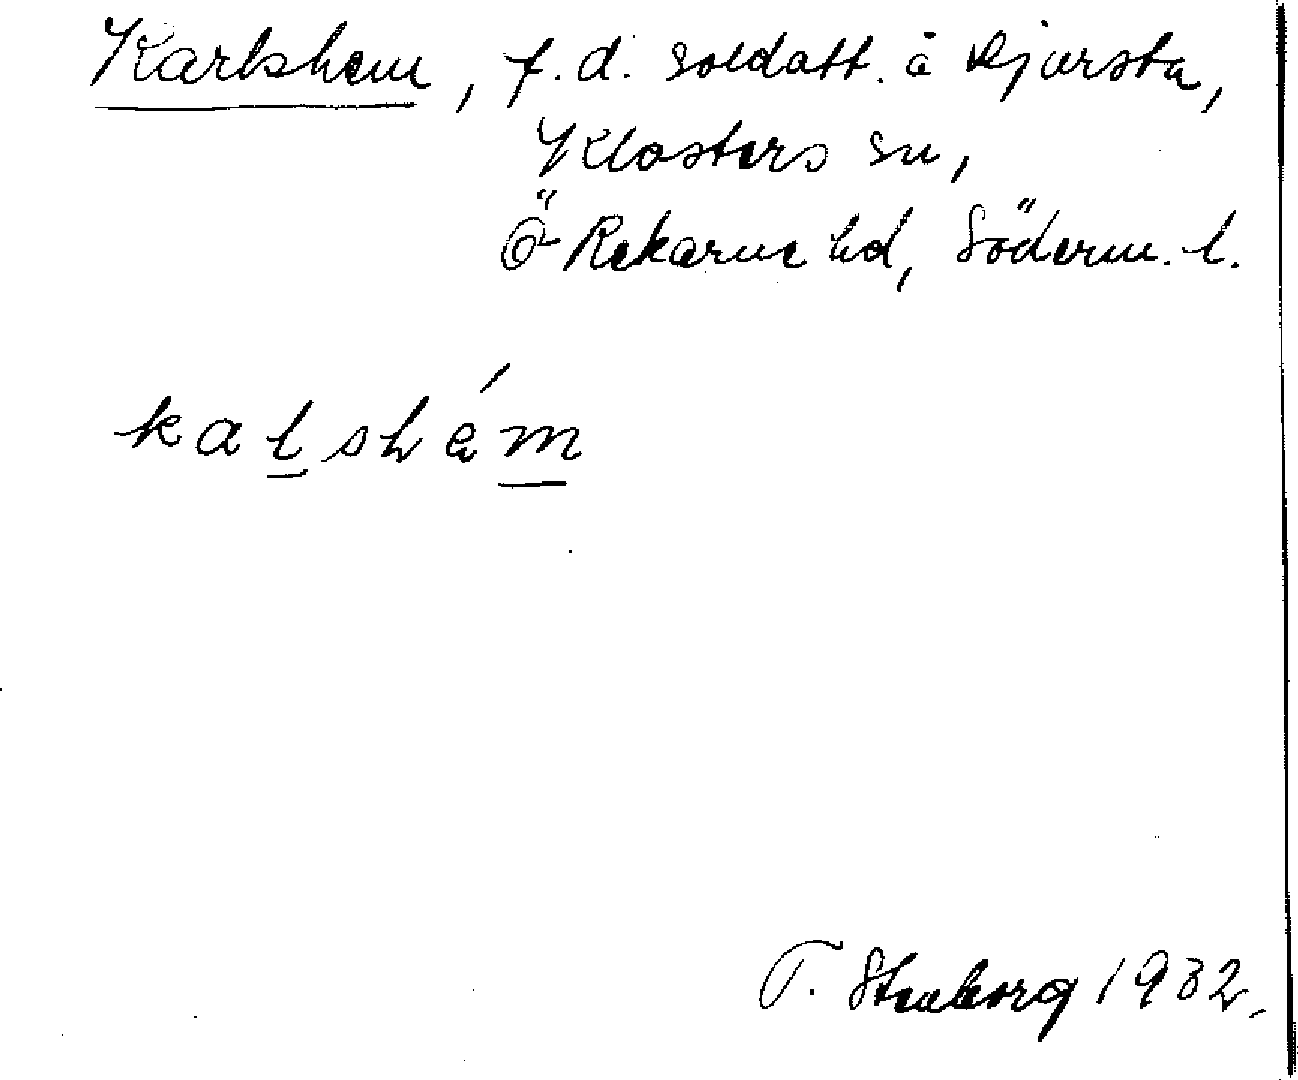 Karlshem, f.d. soldatt. å Djursta,
Klosters sn,
Ö Rekarne hd, Söderm. l.
kalshém
T. Stenborg 1932.